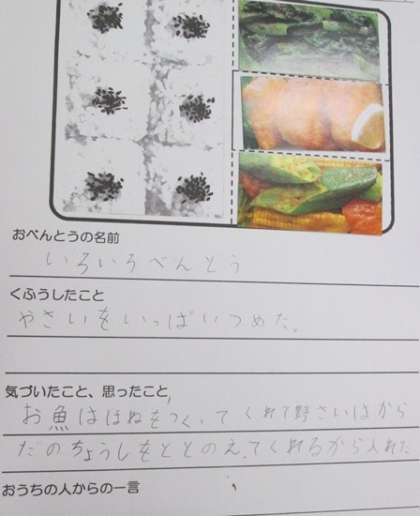 おべんとうの名前
いろいろべんとう
くふうしたこと
やさいをいっぱいつめた。
気づいたこと、思ったこと
お魚はほねをつくってくれて野さいはから
だのちょうしをととのえてくれるから入れた
おうちの人からの一言